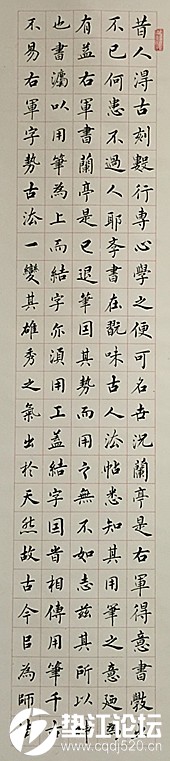 昔人得古刻數行專心學之便可名世況蘭亭是右軍得意書學之
不已何患不過人耶學書在翫味古人法帖悉知其用筆之意廼為
有益右軍書蘭亭是已退筆因其勢而用之無不如志茲其所以神
也書灋以用筆為上而結字亦須用工蓋結字因時相傳用筆千古
不易右軍字勢古法一變其雄秀之氣出於天然故古今以為師法
垫江论坛
www.cqdj520.cn